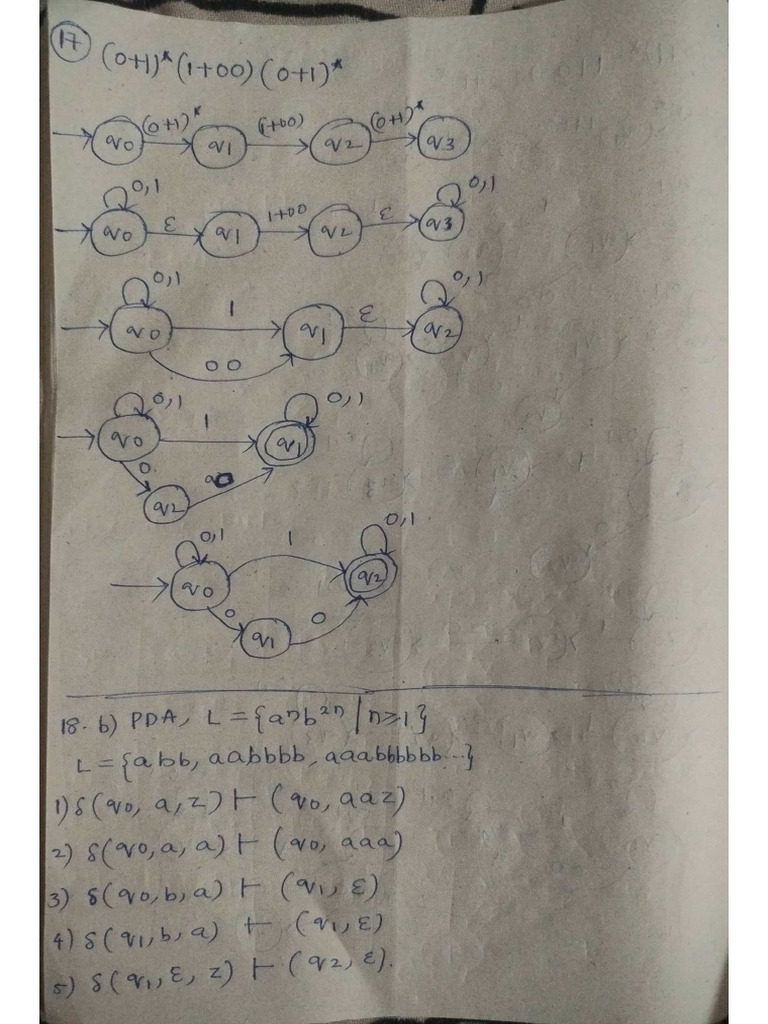 17 (0+1)* (1+00) (0+1)*
(0+1)* (1+00) (0+1)*
q0 q1 q2 q3
0,1 0,1
q0 ε q1 1+00 q2 ε q3
0,1 0,1
q0 1 q1 ε q2
00
0,1 0,1
q0 1 q1
0
q2 0
0,1 1 0,1
q0 q2
0 q1 0
18. b) PDA, L = {aⁿb²ⁿ | n≥1}
L = {abb, aabbbb, aaabbbbbb...}
1) δ(q0, a, z) ⊢ (q0, aaz)
2) δ(q0, a, a) ⊢ (q0, aaa)
3) δ(q0, b, a) ⊢ (q1, ε)
4) δ(q1, b, a) ⊢ (q1, ε)
5) δ(q1, ε, z) ⊢ (q2, ε).